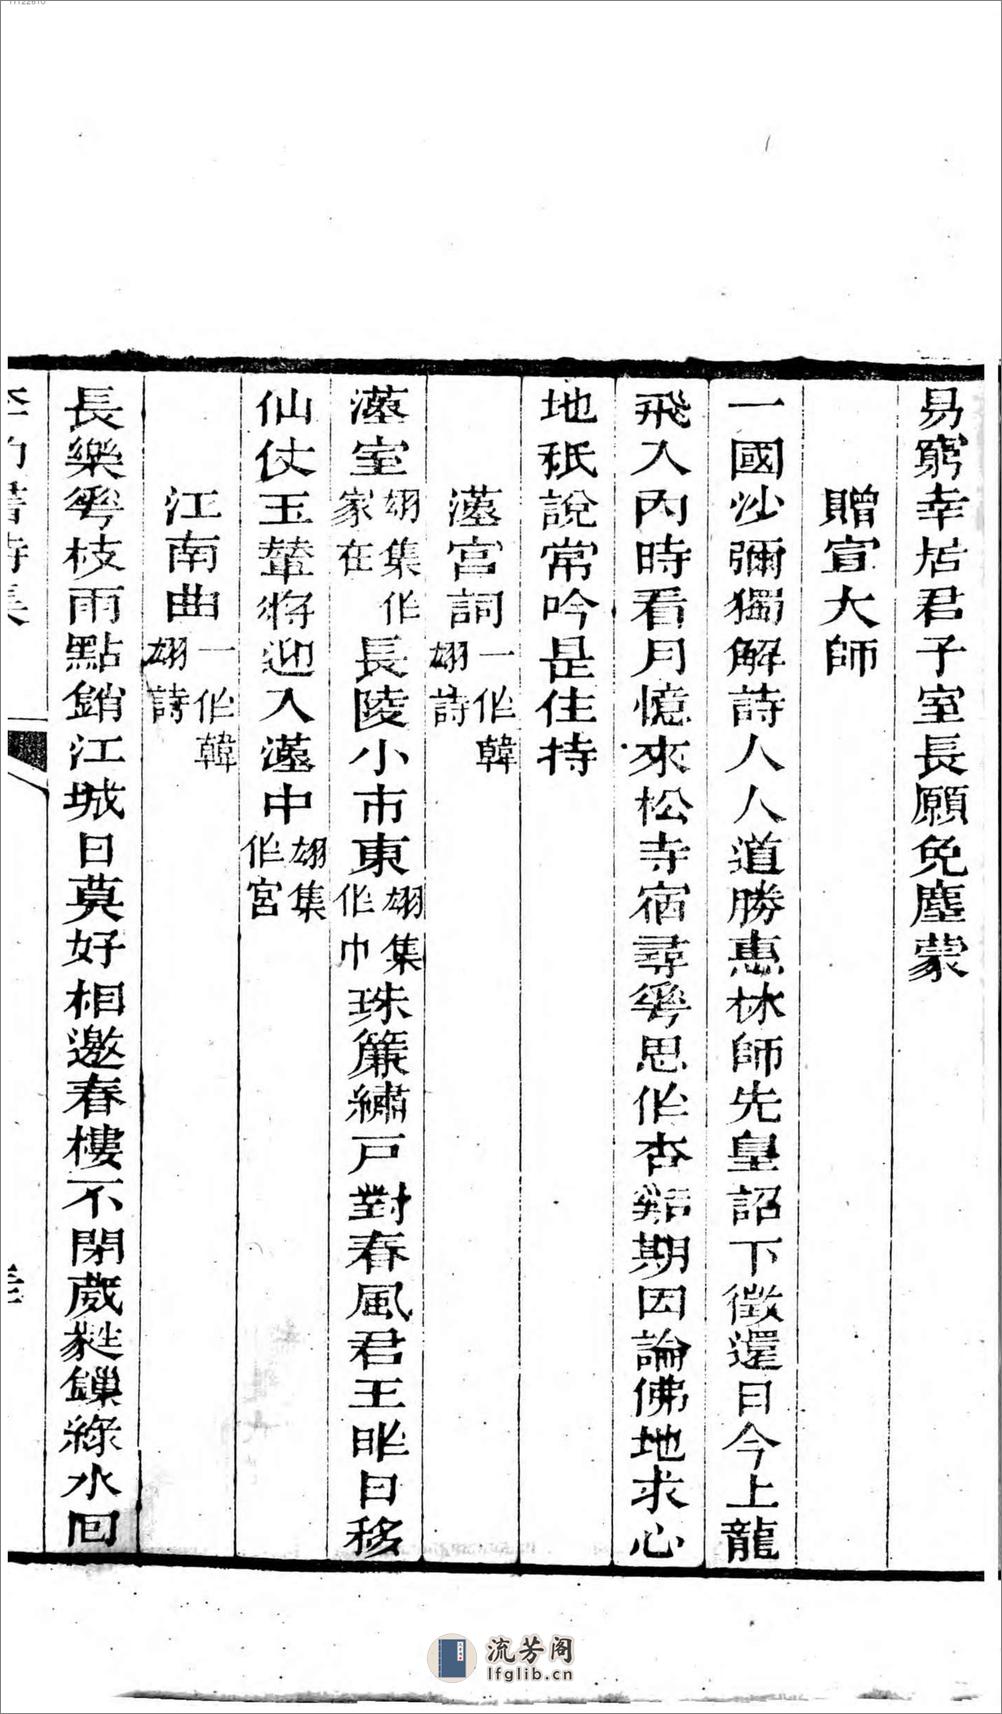 易窮幸居君子室長願免塵蒙
贈宣大師
一國沙彌獨解詩人人道勝惠林師先皇詔下徵還日今上龍
飛入內時看月憶來松寺宿尋花思作杏谿期因論佛地求心
地秖說常吟是住持
漢宮詞一作韓翃詩
漢室翃集作家在長陵小市東翃集作巾珠簾繡戸對春風君王昨日移
仙仗玉輦將迎入漢中翃集作宮
江南曲一作韓翃詩
長樂花枝雨點銷江城日莫好相邀春樓不閉葳蕤鏁綠水回
流芳阁
lfglib.cn